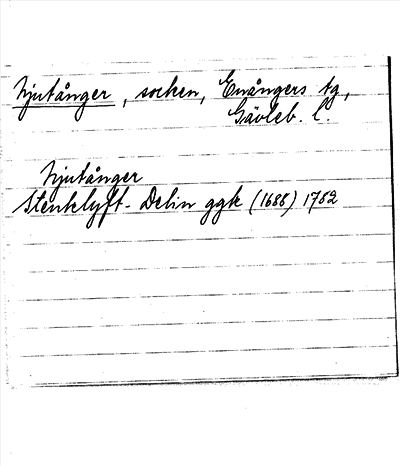 Njutånger, socken, Enångers tg,
Gävleb. l.
Njutånger
Stenklyft - Delin ggk (1688) 1752